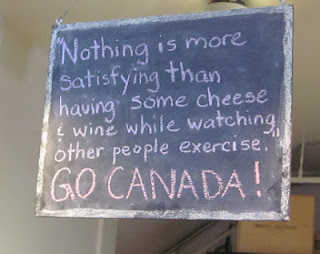 "Nothing is more
satisfying than
having some cheese
& wine while watching
other people exercise."
GO CANADA!